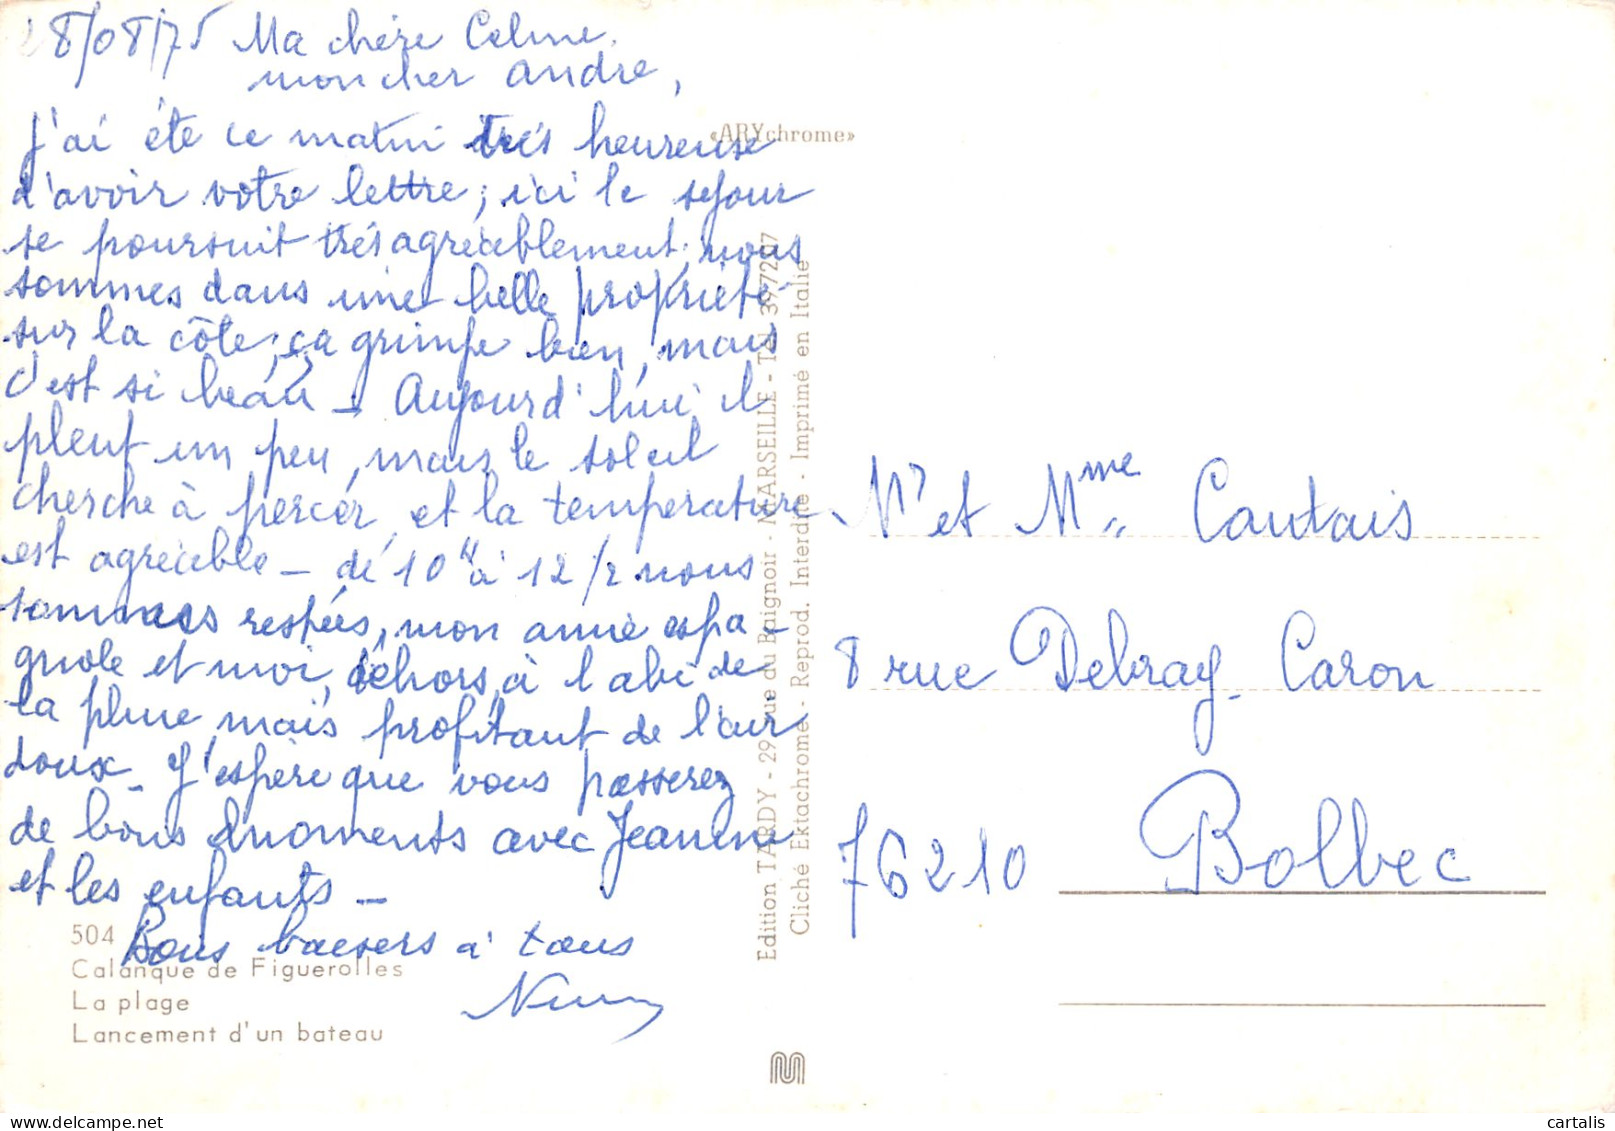 8/08/75 Ma chère Celine,
mon cher André,
J'ai éte ce matin très heureuse
d'avoir votre lettre; ici le sejour
se poursuit très agréablement; nous
sommes dans une belle propriété
sur la côte; ça grimpe bien, mais
c'est si beau - Aujourd'hui il
pleut un peu, mais le soleil
cherche à percer, et la température
est agréable - de 10H à 12/2 nous
sommes restées, mon amie espa-
gnole et moi, dehors, à l'abi de
la pluie, mais profitant de l'air
doux - J'espère que vous passerez
de bons moments avec Jeannine
et les enfants -
Bons baisers à tous
«ARYchrome»
Edition TARDY - 29, rue du Baignoir - MARSEILLE - Tél.
Cliché Ektachrome - Reprod. Interdite - Imprimé en Italie
504
Calanque de Figuerolles
La plage
Lancement d'un bateau
Mr et Mme Cautais
8 rue Debray-Caron
76210 Bolbec
cartalis